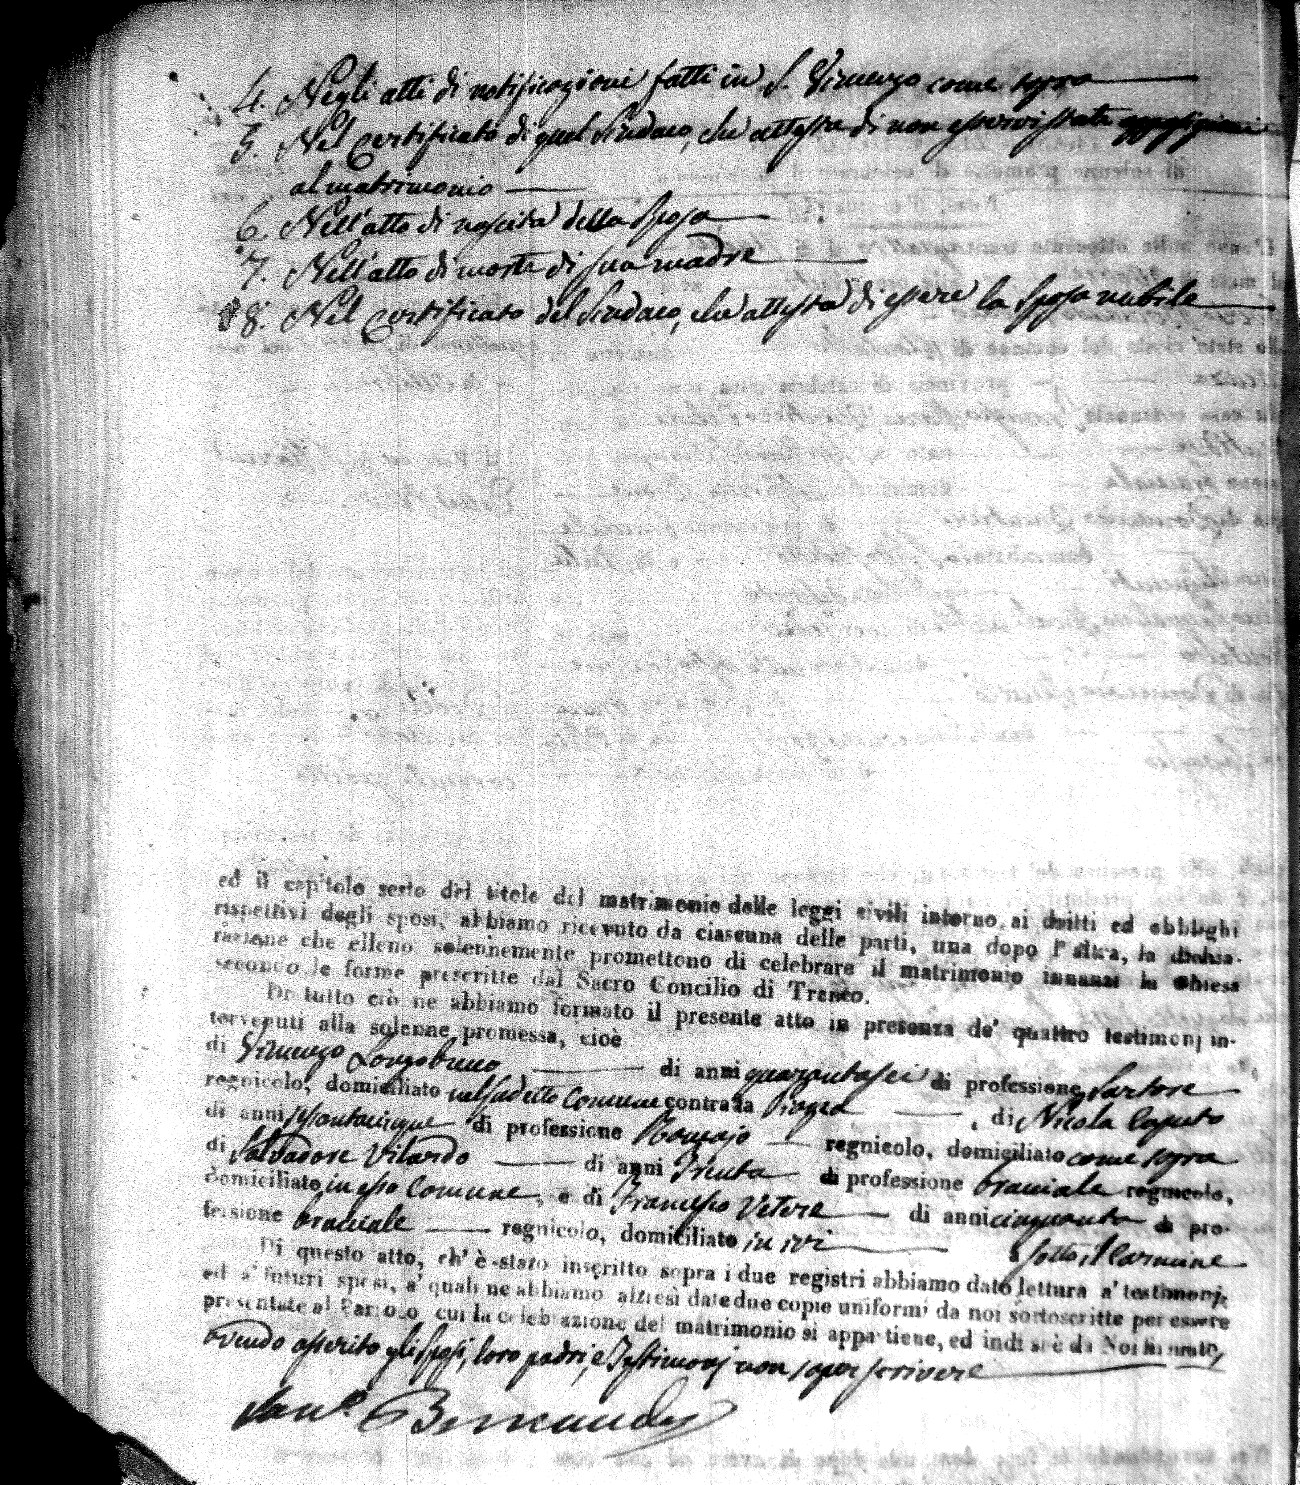 4. Negli atti di notificazioni fatti in S. Vincenzo come sopra
5. Nel certificato di quel Sindaco, che attesta di non esservi state opposizioni
al matrimonio
6. Nell'atto di nascita della Sposa
7. Nell'atto di morte di sua madre
8. Nel certificato del Sindaco, che attesta di essere la Sposa nubile
ed il capitolo sesto del titolo del matrimonio delle leggi civili intorno ai dritti ed obblighi
rispettivi degli sposi, abbiamo ricevuto da ciascuna delle parti, una dopo l'altra, la dichia-
razione che elleno solennemente promettono di celebrare il matrimonio innanzi la Chiesa
secondo le forme prescritte dal Sacro Concilio di Trento.
Di tutto ciò ne abbiamo formato il presente atto in presenza de' quattro testimonj in-
tervenuti alla solenne promessa, cioè
di Vincenzo Longobucco di anni quarantasei di professione Sartore
regnicolo, domiciliato nel sudetto Comune contrada di Nicola Caputo
di anni di professione regnicolo, domiciliato come sopra
di Salvadore Vilardo di anni Trenta di professione bracciale regnicolo,
domiciliato in esso Comune, e di Francesco Vetere di anni cinquanta di pro-
fessione bracciale regnicolo, domiciliato in ivi sotto il Carmine
Di questo atto, ch' è stato inscritto sopra i due registri abbiamo dato lettura a' testimonj,
ed a' futuri sposi, a' quali ne abbiamo altresì date due copie uniformi da noi sottoscritte per essere
presentate al Parroco cui la celebrazione del matrimonio si appartiene, ed indi si è da Noi firmato,
avendo asserito gli sposi, loro padri, e Testimonj non saper scrivere